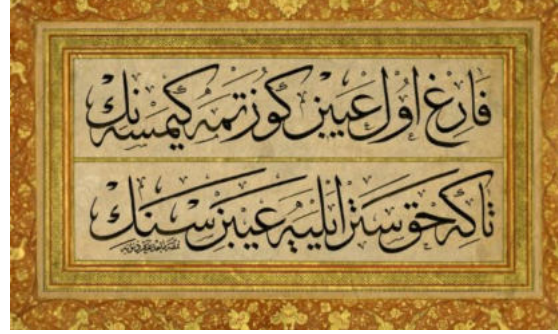 فارغ اول عیبن گوزتمه كیمسه‌نك
تا كه حق ستر ایلیه عیبن سنك